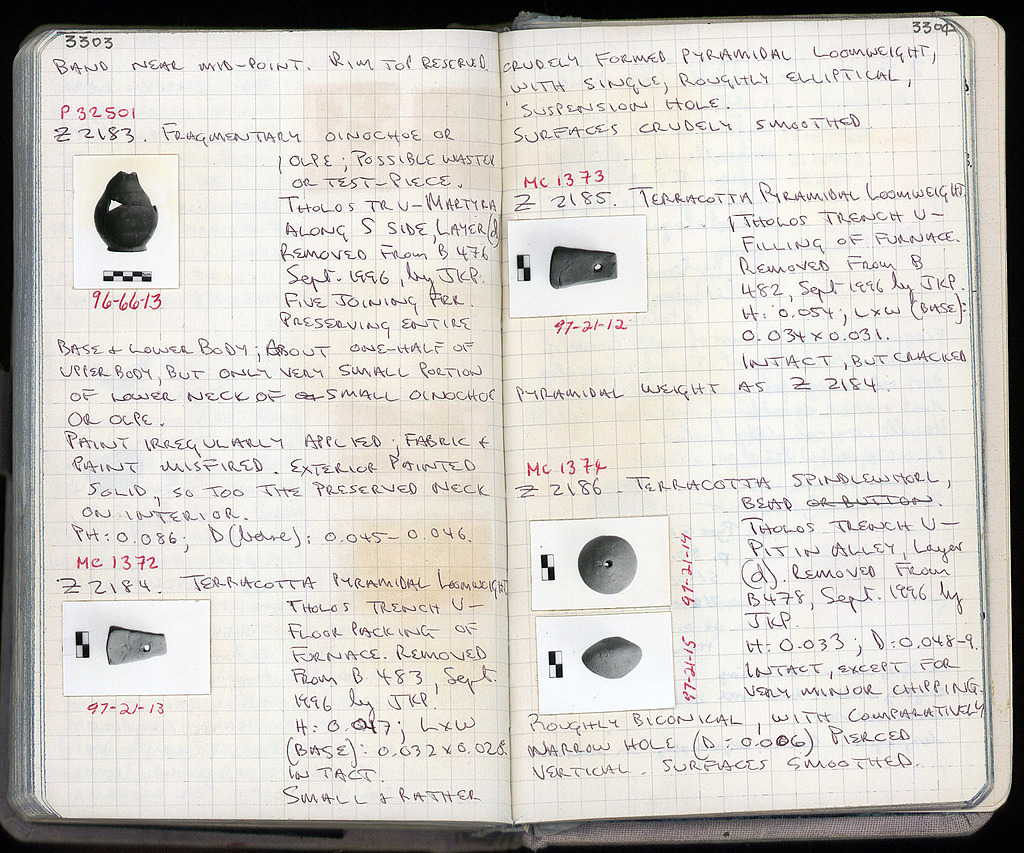 3303
BAND NEAR MID-POINT. RIM TOP RESERVED.
P 32501
Z 2183. FRAGMENTARY OINOCHOE OR
OLPE; POSSIBLE WASTER
OR TEST-PIECE.
THOLOS TR U-MARTYRA
ALONG S SIDE, LAYER (d)
REMOVED FROM B 476
Sept. 1996, by JKP.
FIVE JOINING FRR.
PRESERVING ENTIRE
96-66-13
BASE & LOWER BODY; ABOUT ONE-HALF OF
UPPER BODY, BUT ONLY VERY SMALL PORTION
OF LOWER NECK OF SMALL OINOCHOE
OR OLPE.
PAINT IRREGULARLY APPLIED; FABRIC &
PAINT MISFIRED. EXTERIOR PAINTED
SOLID, SO TOO THE PRESERVED NECK
ON INTERIOR.
PH: 0.086; D (base): 0.045-0.046.
MC 1372
Z 2184. TERRACOTTA PYRAMIDAL LOOMWEIGHT
THOLOS TRENCH U-
FLOOR PACKING OF
FURNACE. REMOVED
FROM B 483, Sept.
1996 by JKP.
H: 0.047; L x W
(BASE): 0.032 x 0.028.
INTACT.
SMALL & RATHER
97-21-13
3304
CRUDELY FORMED PYRAMIDAL LOOMWEIGHT,
WITH SINGLE, ROUGHLY ELLIPTICAL,
SUSPENSION HOLE.
SURFACES CRUDELY SMOOTHED
MC 1373
Z 2185. TERRACOTTA PYRAMIDAL LOOMWEIGHT.
THOLOS TRENCH U-
FILLING OF FURNACE.
REMOVED FROM B
482, Sept 1996 by JKP.
H: 0.054; L x W (BASE):
0.034 x 0.031.
INTACT, BUT CRACKED
97-21-12
PYRAMIDAL WEIGHT AS Z 2184.
MC 1374
Z 2186. TERRACOTTA SPINDLEWHORL,
BEAD OR BUTTON.
THOLOS TRENCH U-
PIT IN ALLEY, Layer
(d). REMOVED FROM
B 478, Sept. 1996 by
JKP.
H: 0.033; D: 0.048-9.
INTACT, EXCEPT FOR
VERY MINOR CHIPPING.
97-21-14
97-21-15
ROUGHLY BICONICAL, WITH COMPARATIVELY
NARROW HOLE (D: 0.006) PIERCED
VERTICAL. SURFACES SMOOTHED.